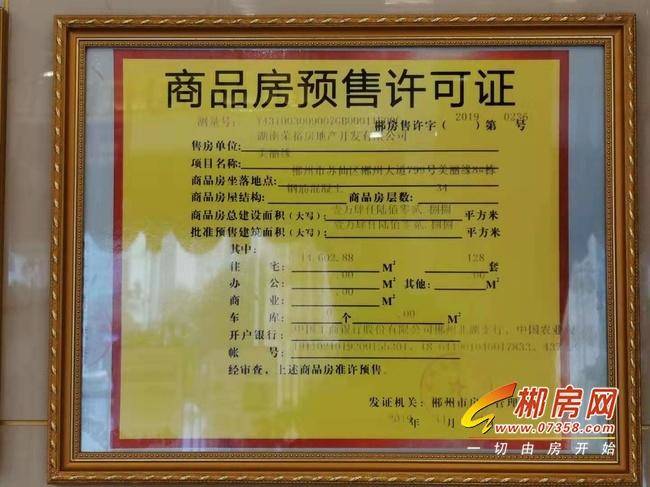 商品房预售许可证
测量号:
郴房售许字( 2019 )第 0226 号
售房单位: 湖南荣裕房地产开发有限公司
项目名称: 美丽缘
商品房坐落地点: 郴州市苏仙区郴州大道799号美丽缘8#栋
商品房屋结构: 钢筋混凝土 商品房层数: 34
商品房总建设面积(大写): 壹万肆仟陆佰零贰.捌捌 平方米
批准预售建筑面积(大写): 壹万肆仟陆佰零贰.捌捌 平方米
其中:
住 宅: 14,602.88 M² 128 套
办 公: .00 M² 其他: .00 M²
商 业: .00 M²
车 库: 0 个 .00 M²
开户银行: 中国工商银行股份有限公司郴州北湖支行、中国农业
帐 号:
经审查,上述商品房准许预售。
发证机关: 郴州市房 管理
2019 年 11 月
郴房网
www.07358.com
一切由房开始